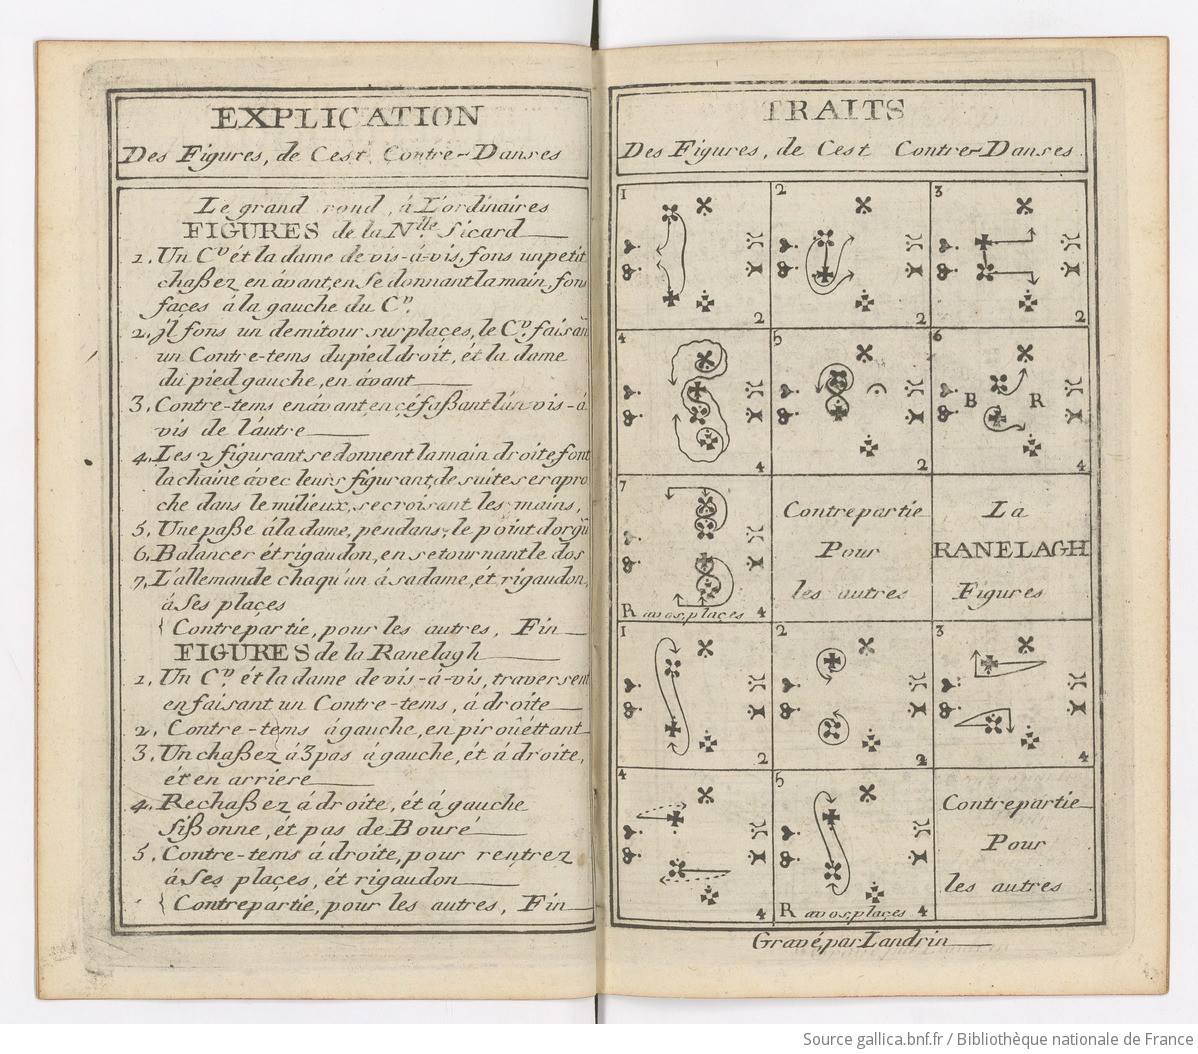 EXPLICATION
Des Figures, de Cest Contre-Danses
Le grand rond, à L'ordinaires
FIGURES de la Nlle. Sicard
1. Un Cv. ét la dame de vis-à-vis, fons un petit
chaßez en ávant, en se donnant la main, fon
faces á la gauche du Cv.
2. jl fons un demitour sur plaçes, le Cv. faisan
un Contre-tems du pied droit, ét la dame
du pied gauche, en ávant
3. Contre-tems en ávant, en çé faßant l'un vis-á
vis de l'autre
4. Les 2 figurant se donnent la main droite, font
la chaine ávec leurs figurant, de suite se rapro
che dans le milieux, se croisant les mains,
5. Une paße á la dame, pendans, le point d'orgu
6. Balancer ét rigaudon, en se tournant le dos
7. L'allemande chaqu'un á sa dame, ét rigaudon,
á Ses plaçes
Contrepartie, pour les autres, Fin
FIGURES de la Ranelagh
1. Un Cv. ét la dame de vis-á-vis, traversent
en faisant un Contre-tems, á droite
2. Contre-tems á gauche, en piroûéttant
3. Un chaßez á 3 pas á gauche, ét á droite,
ét en arriere
4. Rechaßez á droite, ét á gauche
Sißonne, ét pas de Bouré
5. Contre-tems á droite, pour rentrez
á Ses plaçes, ét rigaudon
Contrepartie, pour les autres, Fin
TRAITS
Des Figures, de Cest Contre-Danses
1
2
2
2
3
2
4
4
5
2
6
B R
4
7
R avos plaçes 4
Contrepartie
Pour
les autres
La
RANELAGH
Figures
1
2
2
2
3
4
4
4
5
R avos plaçes 4
Contrepartie
Pour
les autres
Gravé par Landrin
Source gallica.bnf.fr / Bibliothèque nationale de France